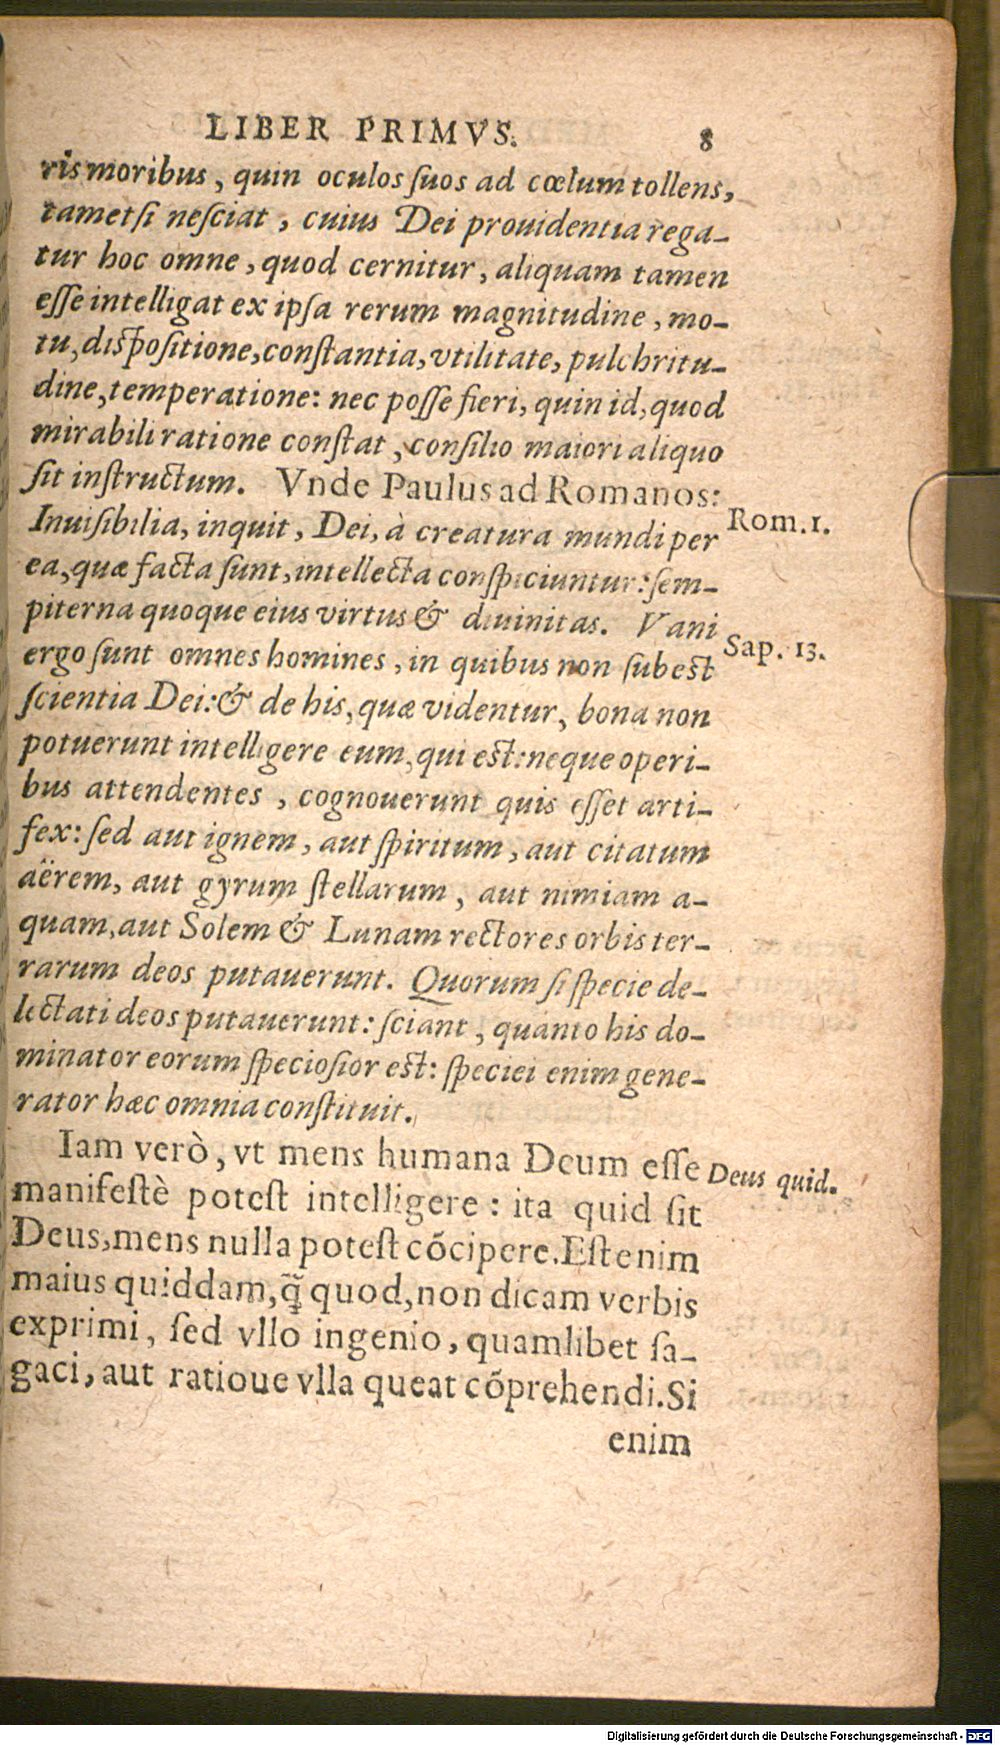 LIBER PRIMVS. 8
ris moribus, quin oculos ſuos ad cœlum tollens,
tametſi neſciat, cuius Dei prouidentia rega-
tur hoc omne, quod cernitur, aliquam tamen
eſſe intelligat ex ipſa rerum magnitudine, mo-
tu, diſpoſitione, conſtantia, vtilitate, pulchritu-
dine, temperatione: nec poſſe fieri, quin id, quod
mirabili ratione conſtat, conſilio maiori aliquo
ſit inſtructum. Vnde Paulus ad Romanos:
Inuiſibilia, inquit, Dei, à creatura mundi per Rom. 1.
ea, quæ facta ſunt, intellecta conſpiciuntur: ſem-
piterna quoque eius virtus & diuinitas. Vani
ergo ſunt omnes homines, in quibus non ſubeſt Sap. 13.
ſcientia Dei: & de his, quæ videntur, bona non
potuerunt intelligere eum, qui eſt: neque operi-
bus attendentes, cognouerunt quis eſſet arti-
fex: ſed aut ignem, aut ſpiritum, aut citatum
aërem, aut gyrum ſtellarum, aut nimiam a-
quam, aut Solem & Lunam rectores orbis ter-
rarum deos putauerunt. Quorum ſi ſpecie de-
lectati deos putauerunt: ſciant, quanto his do-
minator eorum ſpecioſior eſt: ſpeciei enim gene-
rator hæc omnia conſtituit.
Iam verò, vt mens humana Deum eſſe Deus quid.
manifeſtè poteſt intelligere: ita quid ſit
Deus, mens nulla poteſt cōcipere. Eſt enim
maius quiddam, q̃ quod, non dicam verbis
exprimi, ſed vllo ingenio, quamlibet ſa-
gaci, aut ratioue vlla queat cōprehendi. Si
enim
Digitalisierung gefördert durch die Deutsche Forschungsgemeinschaft - DFG